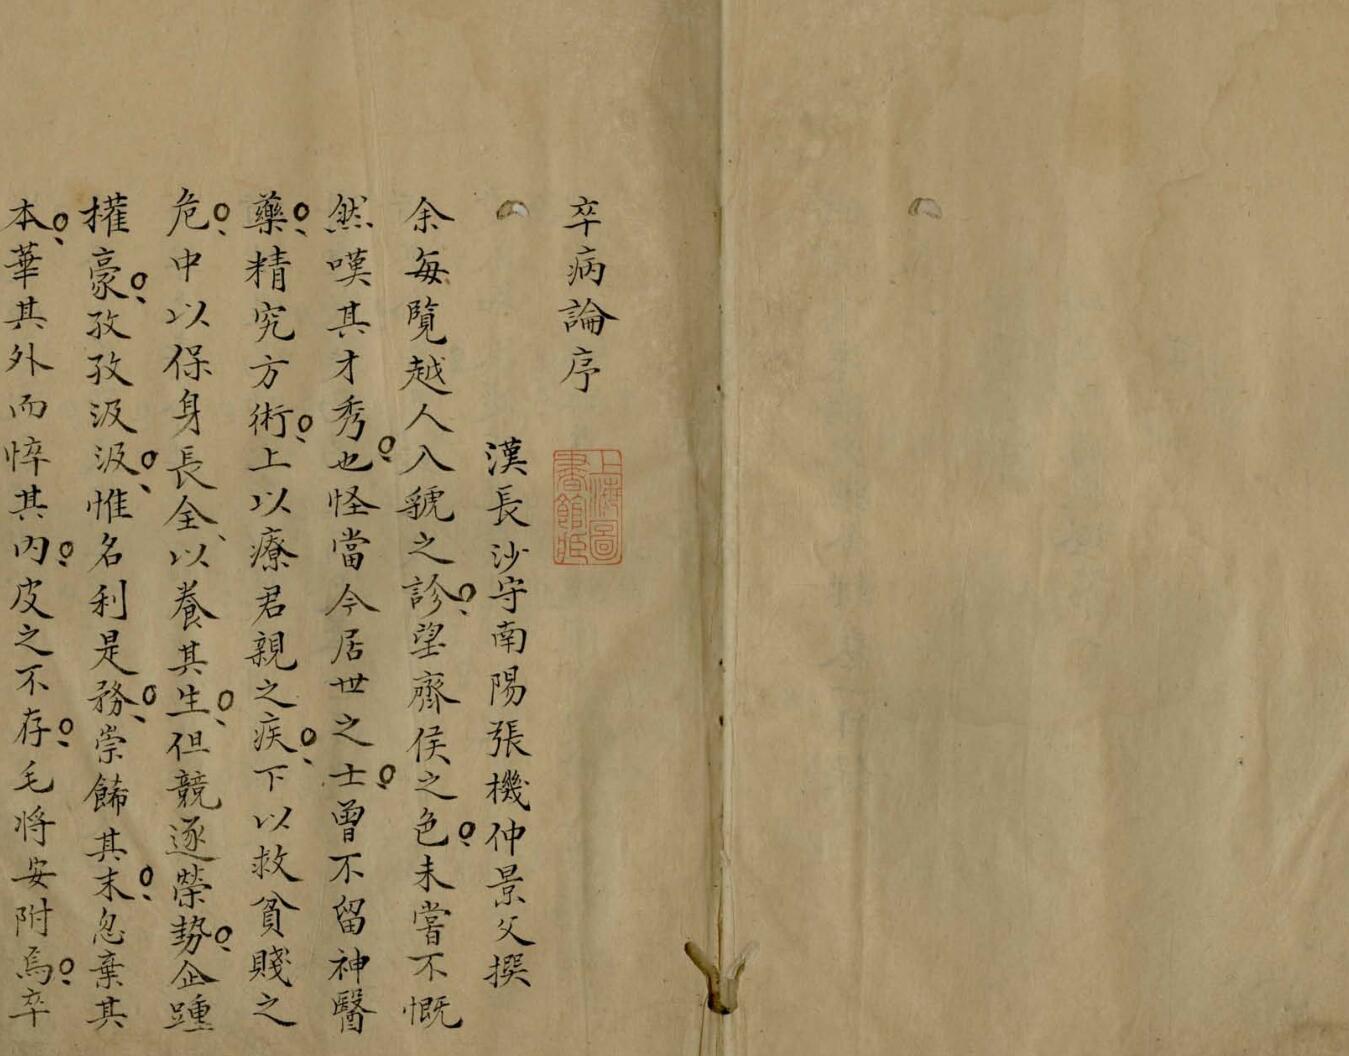 卒病論序
上海圖書館藏
漢長沙守南陽張機仲景父撰
余每覽越人入虢之診望齊侯之色未嘗不慨
然嘆其才秀也怪當今居世之士曾不留神醫
藥精究方術上以療君親之疾下以救貧賤之
危中以保身長全以養其生但競逐榮勢企踵
權豪孜孜汲汲惟名利是務崇飾其末忽棄其
本華其外而悴其內皮之不存毛將安附焉卒